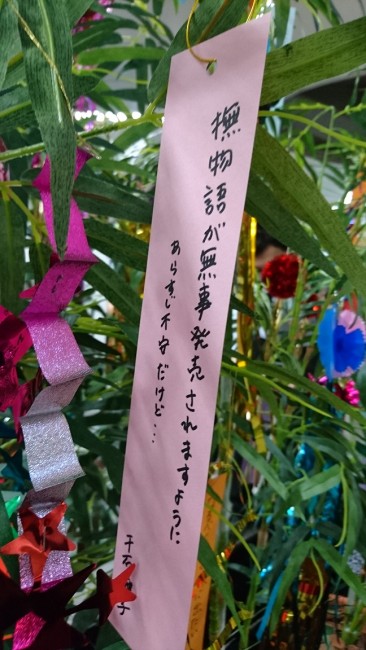 撫物語が無事発売されますように
あらすじ不安だけど…
千石
子